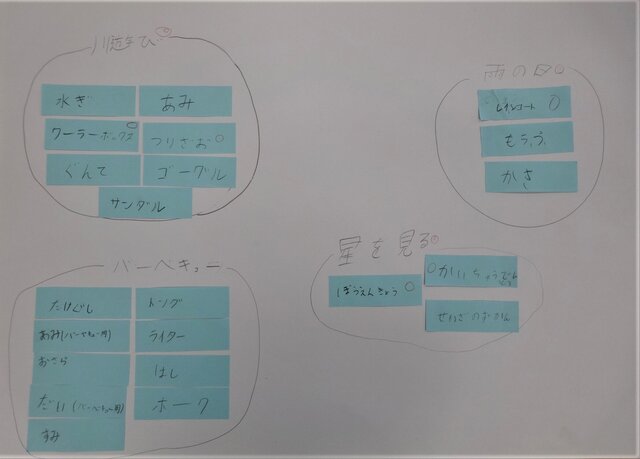 川遊び
水ぎ
あみ
クーラーボックス
つりざお
ぐんて
ゴーグル
サンダル
雨の日
レインコート
もうふ
かさ
星を見る
ぼうえんきょう
かいちゅうでんとう
せいざのずかん
バーベキュー
たけぐし
トング
あみ(バーベキュー用)
ライター
おさら
はし
だい(バーベキュー用)
ホーク
すみ